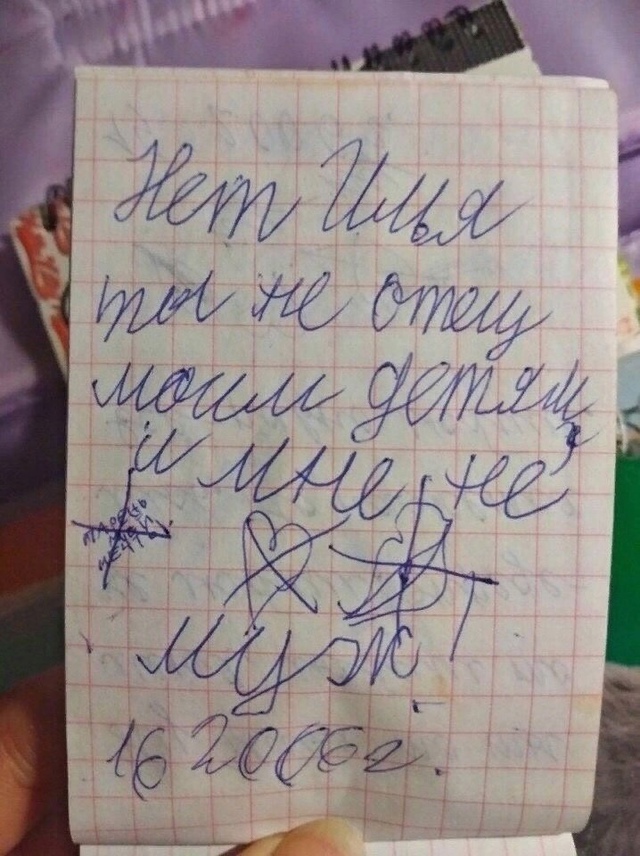 Нет Илья
ты не отец
моим детям,
и мне не
муж!
16 2006г.